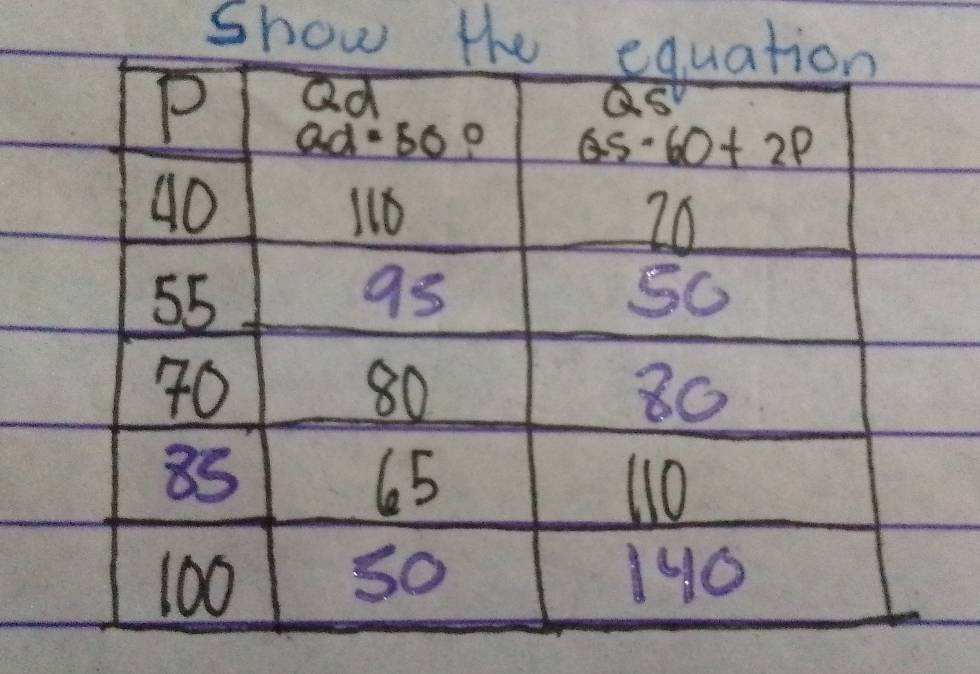 Show the equation
P Qd Qs
Qd=50P Qs=60+2P
40 110 20
55 95 50
70 80 80
85 65 110
100 50 140